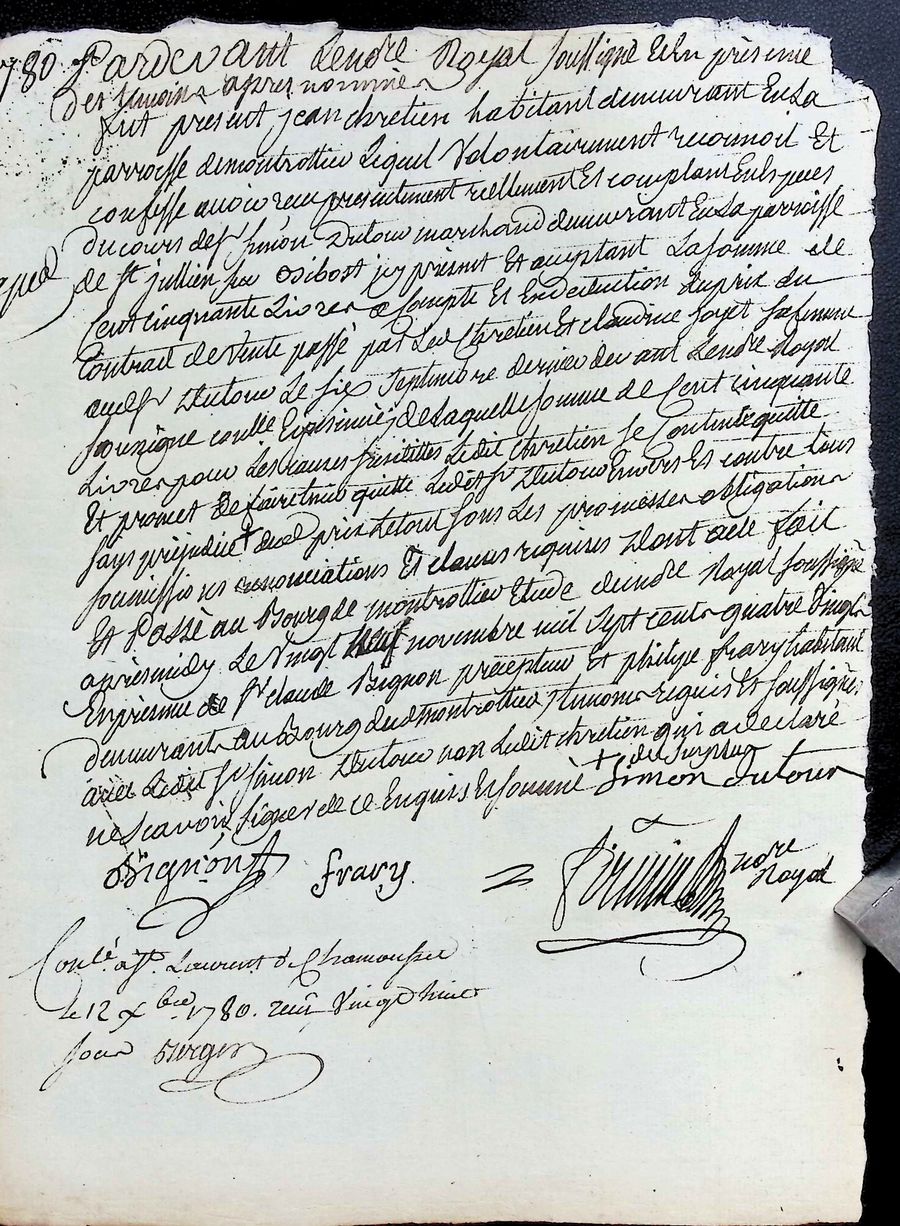 1780 Pardevant Lendre Royal soussigné Et En présence
des témoins après nommés
fut présent jean chrétien habitant demeurant En La
parroisse de montrottier Lequel volontairement reconnoit Et
confesse avoir reçu présentement réellement Et comptant En Espèces
du cours de Sr Simon Dutour marchand demeurant En La parroisse
de St jullien sur Bibost icy présent Et acceptant La somme de
Cent cinquante Livres a compte Et En déduction du prix du
Contrait de vente passé par Led Chrétien Et claudine
aud Sr Dutour Le six Septembre dernier devant Lendre Royal
soussigné de Laquelle somme de Cent cinquante
Livres pour Les causes susdittes Ledit Chrétien se Contente quitte
Et promet de faire tenir quitte Ledit Sr Dutour Envers Et contre tous
sans préjudice + dud prix Le tout sous Les promesses obligations
soumissions renonciations Et clauses requises Dont acte fait
Et Passé au Bourg de montrottier Etude dendre Royal soussigné
après midy Le vingt neuf novembre mil sept cents quatre vingt
En présence de Sr claude Bignon précepteur Et philipe frary habitant
demeurants au Bourg dud montrottier témoins requis Et soussignés
avec Ledit Sr Simon Dutour non Ledit chrétien qui a déclaré
ne scavoir signer de ce Enquis Et sommé + du surplus
Simon dutour
Bignon frary
ndre Royal
Conlé a St Laurent de Chamousset
le 12 xbre 1780. reçu vingt